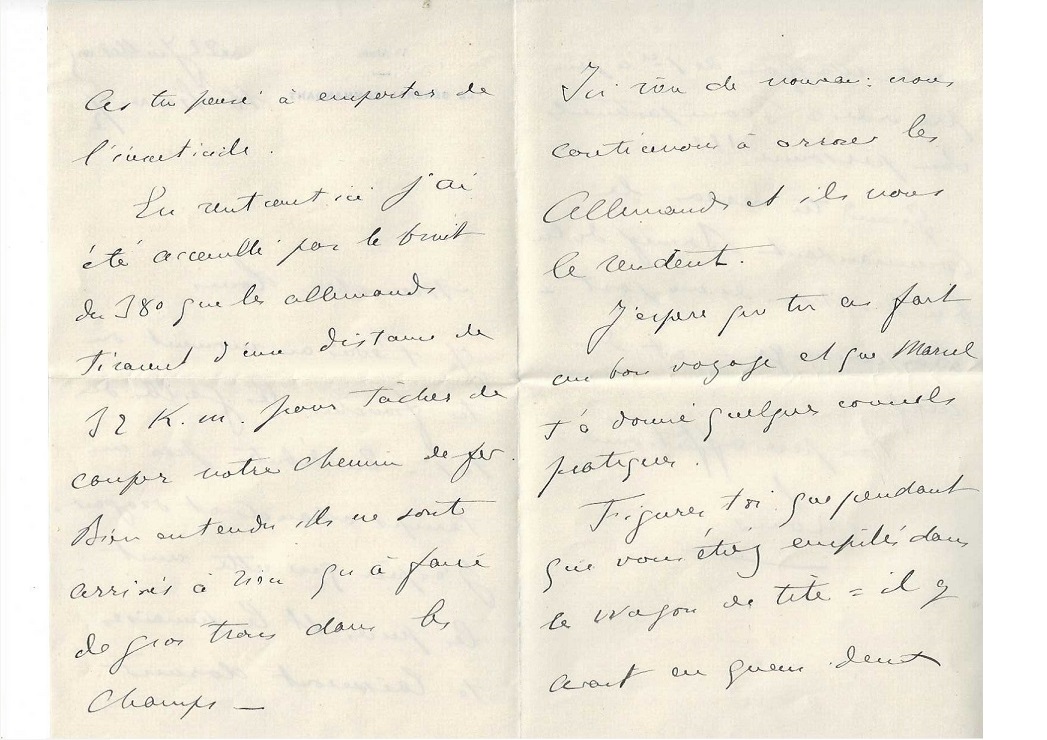 As tu pensé à emporter de
l'insecticide.
En rentrant ici j'ai
été accueilli par le bruit
du 380 que les allemands
tiraient d'une distance de
32 K.m. pour tâcher de
couper notre chemin de fer.
Bien entendu ils ne sont
arrivés à rien qu'à faire
de gros trous dans les
champs —
Ici rien de nouveau : nous
continuons à arroser les
Allemands et ils nous
le rendent.
J'espère que tu as fait
un bon voyage et que Marcel
t'a donné quelques conseils
pratiques.
Figures toi que pendant
que vous étiez empilés dans
le wagon de tête = il y
avait en queue deux